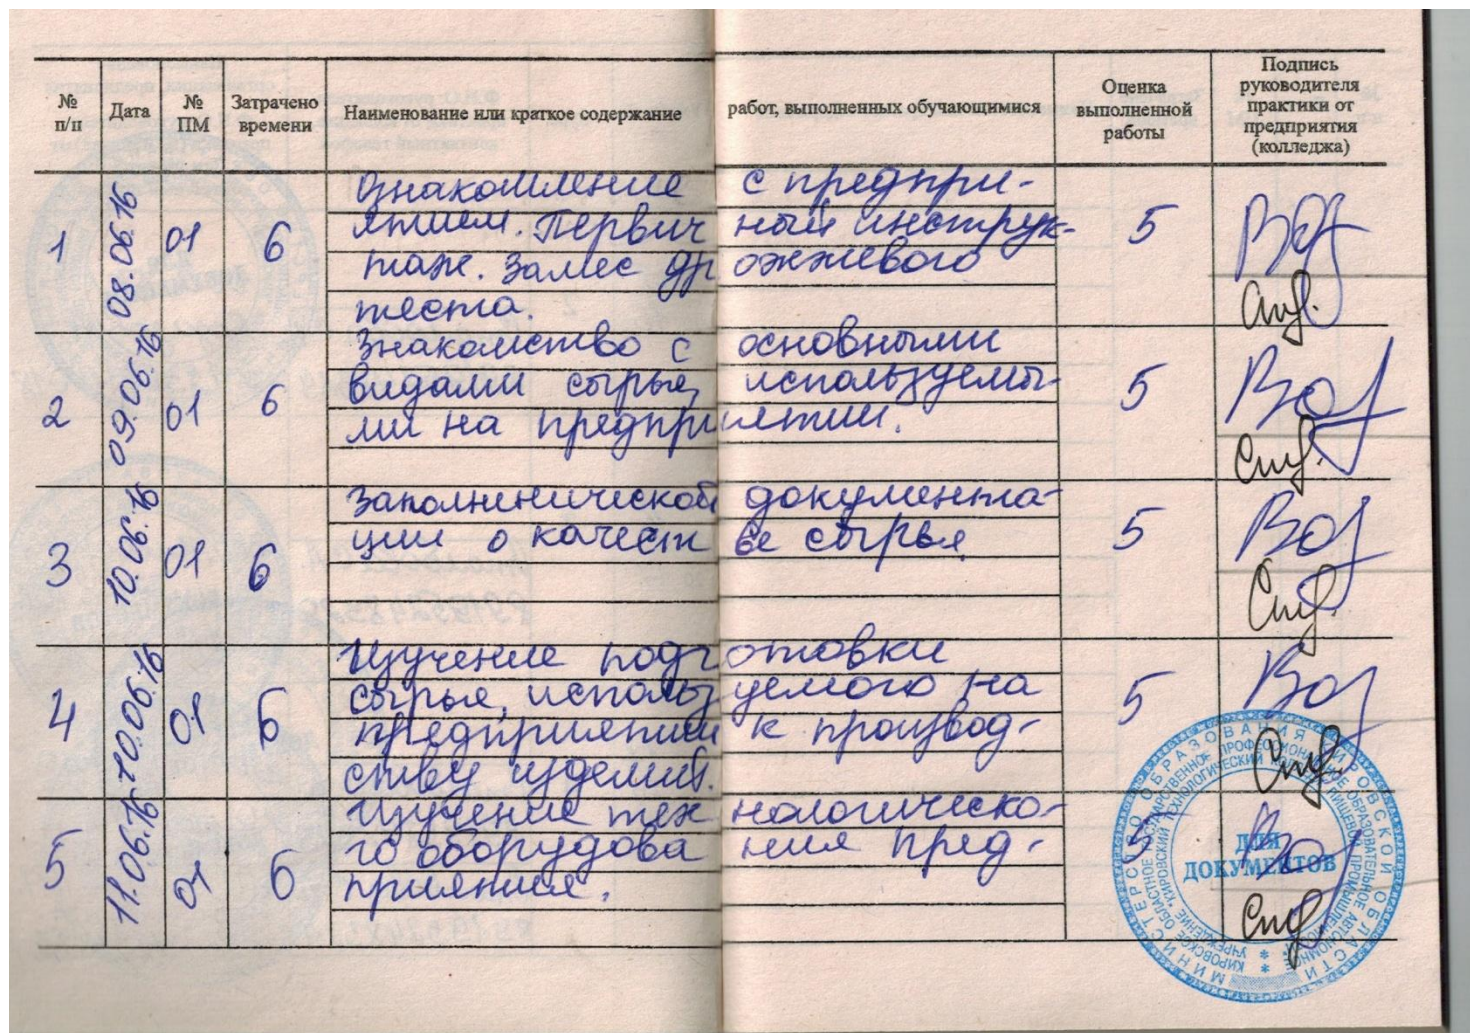 № п/п Дата № ПМ Затрачено времени Наименование или краткое содержание работ, выполненных обучающимися Оценка выполненной работы Подпись руководителя практики от предприятия (колледжа)
1 08.06.16 01 6 Ознакомление с предпри-
ятием. Первичный инструк-
таж. Замес дрожжевого
теста. 5
2 09.06.16 01 6 Знакомство с основными
видами сырья, используемы-
ми на предприятии. 5
3 10.06.16 01 6 документа-
ции о качестве сырья 5
4 10.06.16 01 6 Изучение подготовки
сырья, используемого на
предприятии к производ-
ству изделий. 5
5 11.06.16 01 6 Изучение технологическо-
го оборудования пред-
приятия. 5
МИНИСТЕРСТВО ОБРАЗОВАНИЯ КИРОВСКОЙ ОБЛАСТИ
КИРОВСКОЕ ОБЛАСТНОЕ ГОСУДАРСТВЕННОЕ ПРОФЕССИОНАЛЬНОЕ ОБРАЗОВАТЕЛЬНОЕ АВТОНОМНОЕ
УЧРЕЖДЕНИЕ "КИРОВСКИЙ ТЕХНОЛОГИЧЕСКИЙ ПИЩЕВОЙ ПРОМЫШЛЕННОСТИ
ДЛЯ
ДОКУМЕНТОВ